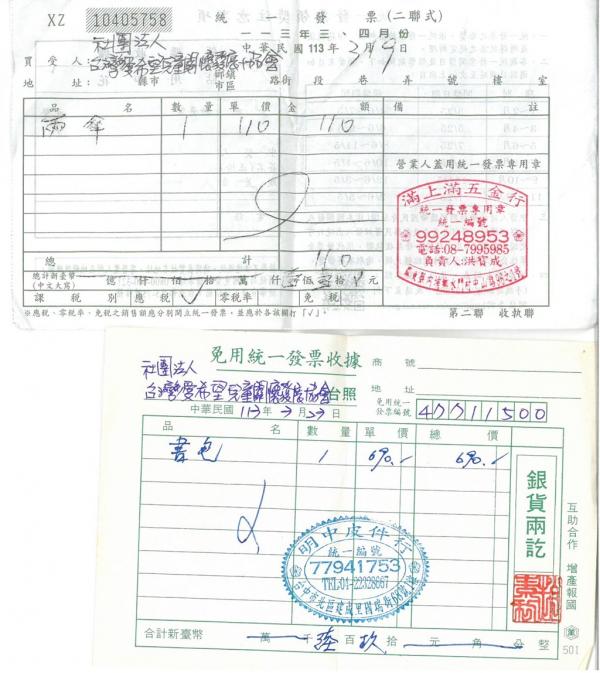 XZ 10405758 統一發票(二聯式)
一一三年三、四月份
中華民國113年3月9日
社團法人
買受人:台灣愛希望兒童關懷發展協會
地址: 縣市 鄉鎮市區 路街 段 巷 弄 號 樓 室
品名 數量 單價 金額 備註
雨傘 1 110 110
營業人蓋用統一發票專用章
滿上滿五金行
統一發票專用章
統一編號
99248953
電話:08-7995985
負責人:洪寶成
總計 110
總計新臺幣(中文大寫) 億 仟 佰 拾 萬 仟 壹佰壹拾 元
課稅別 應稅 √ 零稅率 免稅
※應稅、零稅率、免稅之銷售額應分別開立統一發票,並應於各該欄打「√」。
第二聯 收執聯
免用統一發票收據
商號
社團法人
台灣愛希望兒童關懷發展協會 台照
地址
中華民國113年3月23日
免用統一發票編號
品名 數量 單價 總價
書包 1 690.- 690.-
銀貨兩訖
互助合作 增產報國
明中皮件行
統一編號
77941753
TEL:04-22328667
合計新臺幣 萬 千 陸百玖拾 元 角 分 整
501